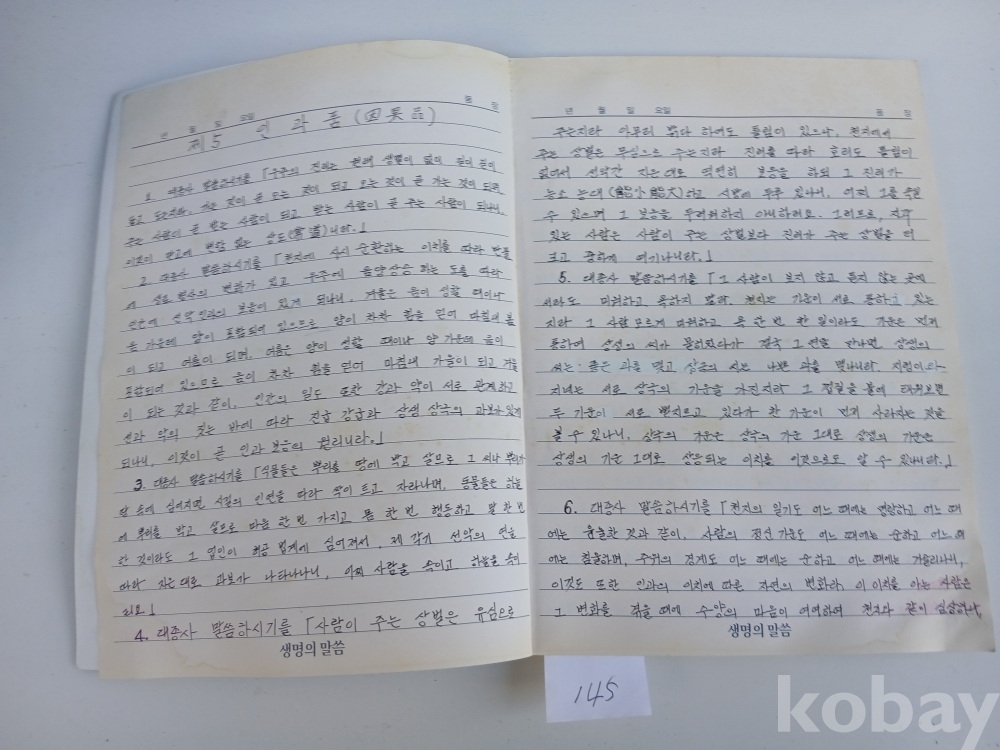 년 월 일 요일
품 장
제5 인과품(因果品)
1. 대종사 말씀하시기를 「우주의 진리는 원래 생멸이 없이 길이 길이
돌고 도는지라, 가는 것이 곧 오는 것이 되고 오는 것이 곧 가는 것이 되며,
주는 사람이 곧 받는 사람이 되고 받는 사람이 곧 주는 사람이 되나니,
이것이 만고에 변함 없는 상도(常道)니라.」
2. 대종사 말씀하시기를 「천지에 사시 순환하는 이치를 따라 만물
에 생로병사의 변화가 있고 우주에 음양상승하는 도를 따라
인간에 선악인과의 보응이 있게 되나니, 겨울은 음이 성할 때이나
음 가운데 양이 포함되어 있으므로 양이 차차 힘을 얻어 마침내 봄
이 되고 여름이 되며, 여름은 양이 성할 때이나 양 가운데 음이
포함되어 있으므로 음이 차차 힘을 얻어 마침내 가을이 되고 겨울
이 되는 것과 같이, 인간의 일도 또한 강과 약이 서로 관계하고
선과 악의 짓는 바에 따라 진급 강급과 상생 상극의 과보가 있게
되나니, 이것이 곧 인과 보응의 원리니라.」
3. 대종사 말씀하시기를 「식물들은 뿌리를 땅에 박고 살므로 그 씨나 뿌리가
땅 속에 심어지면 시절의 인연을 따라 싹이 트고 자라나며, 동물들은 하늘
에 뿌리를 박고 살므로 마음 한 번 가지고 몸 한 번 행동하고 말 한 번
한 것이라도 그 업인이 허공 법계에 심어져서, 제 각기 선악의 연을
따라 지은대로 과보가 나타나나니, 어찌 사람을 속이고 하늘을 속이
리요.」
4. 대종사 말씀하시기를 「사람이 주는 상벌은 유심으로
생명의 말씀
년 월 일 요일
품 장
주는지라 아무리 밝다 하여도 틀림이 있으나, 천지에서
주는 상벌은 무심으로 주는지라 진리를 따라 호리도 틀림이
없어서 선악간 지은대로 역연히 보응을 하되 그 진리가
능소 능대(能小能大)하고 시방에 두루 있나니, 어찌 그를 속일
수 있으며 그 보응을 두려워하지 아니하리요. 그러므로, 지각
있는 사람은 사람이 주는 상벌보다 진리가 주는 상벌을 더
크고 중하게 여기나니라.」
5. 대종사 말씀하시기를 「그 사람이 보지 않고 듣지 않는 곳에
서라도 미워하고 욕하지 말라. 천지는 기운이 서로 통하고 있는
지라 그 사람 모르게 미워하고 욕 한 번 한 일이라도 기운은 먼저
통하여 상극의 씨가 묻히
씨는 좋은 과를 맺고 상극의 씨는 나쁜 과를 맺나니라. 지렁이와
지네는 서로 상극의 기운을 가진지라 그 껍질을 불에 태워보면
두 기운이 서로 뻗지르고 있다가 한 기운이 먼저 사라지는 것을
볼 수 있나니, 상극의 기운은 상극의 기운 그대로 상생의 기운은
상생의 기운 그대로 상응되는 이치를 이것으로도 알 수 있나니라.」
6. 대종사 말씀하시기를 「천지의 일기도 어느 때에는 명랑하고 어느 때
에는 음울한 것과 같이, 사람의 정신 기운도 어느 때에는 순하고 어느 때
에는 침울하며, 주위의 경계도 어느 때에는 순하고 어느 때에는 거슬리나니,
이것도 또한 인과의 이치에 따른 자연의 변화라, 이 이치를 아는 사람은
그 변화를 겪을 때에 수양의 마음이 여여하여 천지와 같이 심상하나,
생명의 말씀
145
kobay